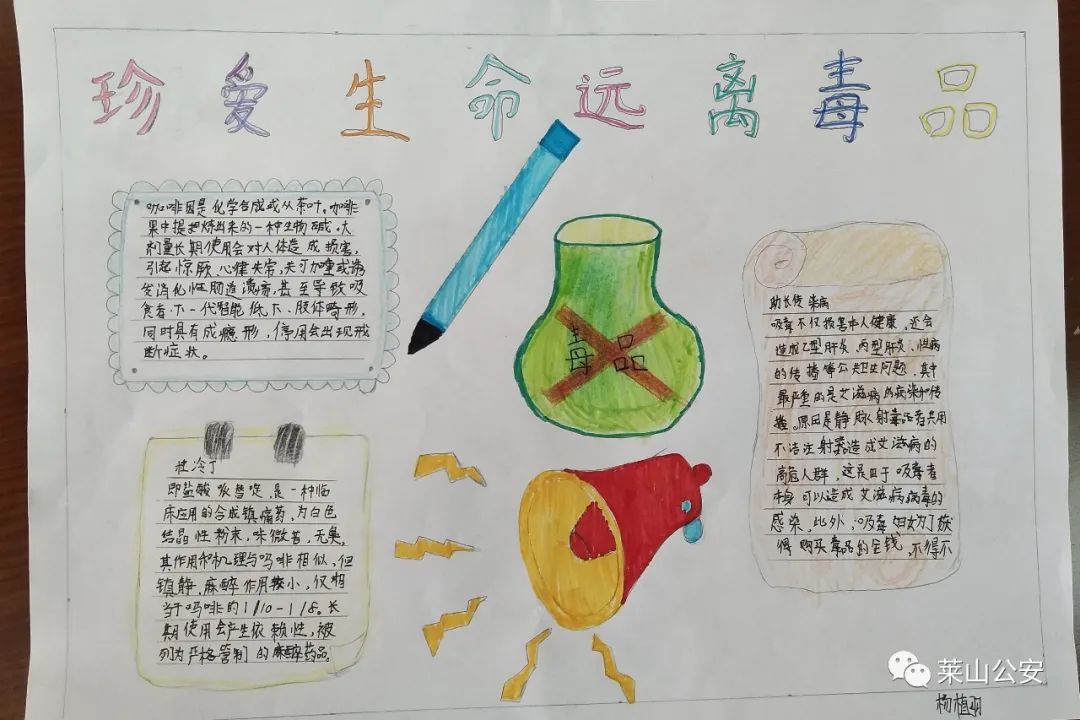 珍爱生命远离毒品
咖啡因是化学合成或从茶叶、咖啡
果中提把炼出来的一种生物碱。大
剂量长期使用会对人体造成损害，
引起惊厥、心律失常，关可加重或诱
发消化性肠道溃疡，甚至导致吸
食者下一代智能低下、肢体畸形，
同时具有成瘾形，停用会出现戒
断症状。
毒品
杜冷丁
即盐酸哌替啶，是一种临
床应用的合成镇痛药，为白色
结晶性粉末，味微苦，无臭，
其作用和机理与吗啡相似，但
镇静、麻醉作用较小，仅相
当于吗啡的1/10-1/8。长
期使用会产生依赖性，被
列为严格管制的麻醉药品。
助长传染病
吸毒不仅损害本人健康，还会
造成乙型肝炎、丙型肝炎、性病
的传播等公共卫生问题，其中
最严重的是艾滋病的病染和传
播。原因是静脉射毒品者共用
不洁注射器造成艾滋病的
高危人群，这是由于吸毒者
本身可以造成艾滋病病毒的
感染，此外，吸毒妇女为了获
得购买毒品的金钱，不得不
莱山公安
杨植